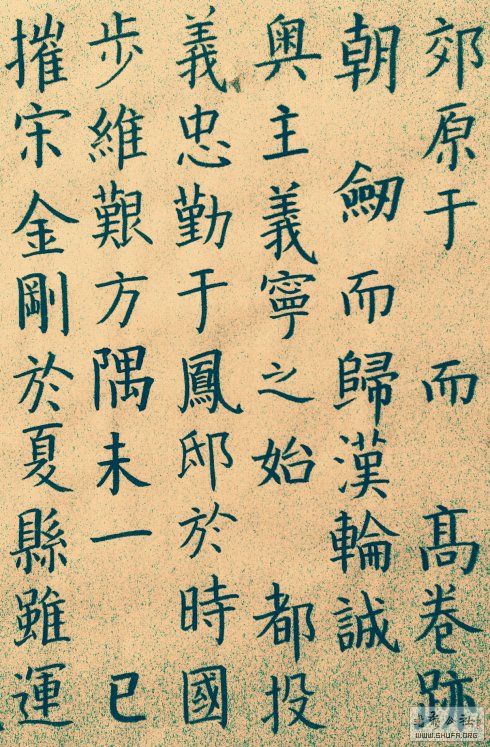 郊原于 而 髙卷跡
朝 劒而歸漢輪誠
奥主義寧之始 都投
義忠勤于鳳邸於時國
步維艱方隅未一 已
摧宋金剛於夏縣雖運
WWW.SHUFA.ORG